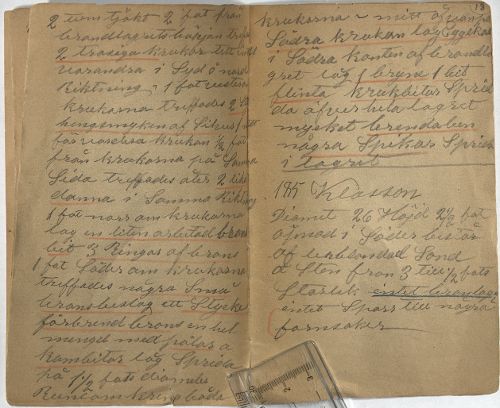 2 tum tjokt 2 fot från
brandlagrets början
2 trasiga krukor tätt
varandra i Syd o nord
Riktning, 1 fot
krukorna träffades 2
af Silver
krukan 1/2 fot
från krukorna på Samma
Sida träffades åter 2
danna i Samma Riktning
1 fot norr om krukorna
låg en liten arbetad brons
bit 3 Ringar af brons
1 fot Söder om krukorna
träffades några Små
bronsbeslag ett Stycke
förbrend brons en hel
mengd med
kambitar låg Sprida
på 1 1/2 fots diameter
Rundt omkring båda
13
krukorna - mitt
Södra krukan låg
i Södra kanten af brandla
gret låg 1 bryne 1 bit
flinta krukbitar Sprid
da öfver hela lagret
mycket brenda ben
några Spikar Sprida
i lagret
185 Klasson
Diamet 26 Höjd 2 1/2 fot
i Söder består
af Sand
o Sten från 3 till 1/2 fots
Storlek intet
intet Spår till några
fornsaker